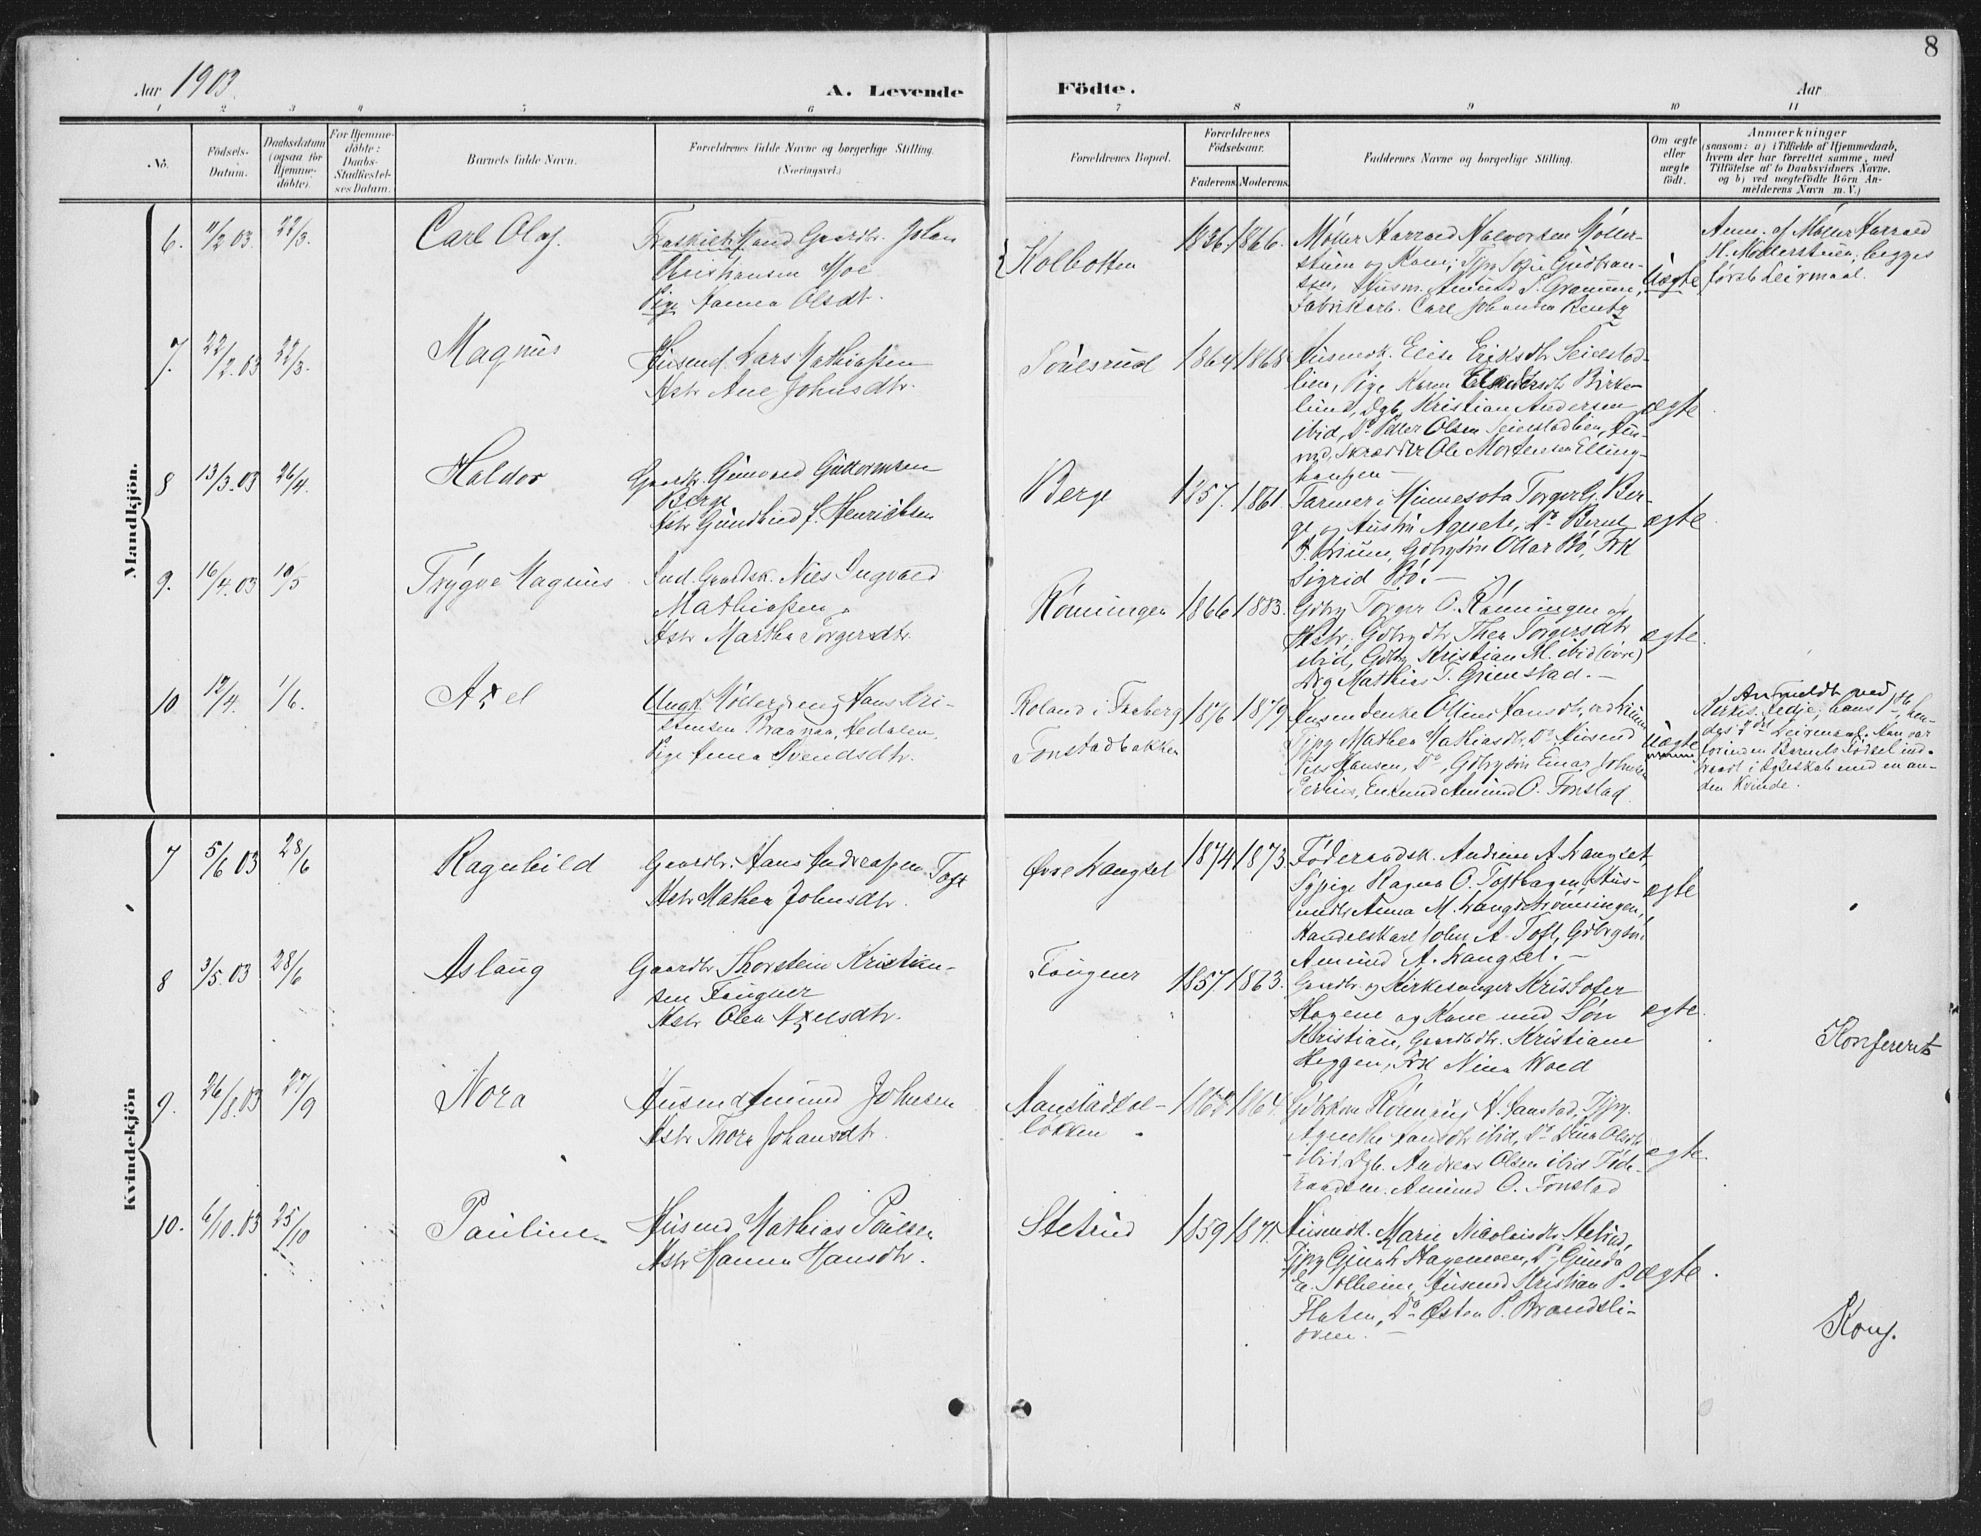 8
Aar 1903.
A. Levende
Födte.
Aar
1 2 3 4 5 6 7 8 9 10 11
No.
Födsels-
Datum.
Daabsdatum
(ogsaa for
Hjemme-
döbte).
For Hjemme-
döbte:
Daabs-
Stadfæstel-
ses Datum.
Barnets fulde Navn.
Forældrenes fulde Navne og borgerlige Stilling.
(Næringsvei.)
Forældrenes Bopæl.
Forældrenes
Födselsaar.
Faderens.
Moderens.
Faddernes Navne og borgerlige Stilling.
Om ægte
eller
uægte
födt.
Anmærkninger
(saasom: a) i Tilfælde af Hjemmedaab,
hvem der har forrettet samme, med
Tilföielse af to Daabsvidners Navne,
og b) ved uægtefödte Börn An-
melderens Navn m. V.)
Mandkjön.
6. 11/2 03. 22/3. Carl Olaf.
Gaardbr. Johan
Christiansen Moe
Pige Hanna Olsdt.
Kolbotten
1836. 1866.
Møller Harrald Halvorsen Møller-
stuen og Kone,
Fabrikarb. Carl Johansen Rentz
Uægte
Anm. af Møller Harrald
H. Møllerstuen, begges
første Leirmaal.
7. 22/2.03 22/3. Magnus
Husmd. Lars Mathiassen
Hstr Ane Johnsdtr.
1864 1868
Husmdk. Elise Eriksdtr Seielstad-
lien, Pige Karen
Birke-
lund, Dgb. Kristian Andersen
ibid, Do Peder Olsen Seielstadlien,
Skrædder Ole Mortensen Elling-
hausen –
ægte
8 13/3.03 26/4. Haldor
Gaardbr. Gunvald Guttormsen
Berge
Hstr Gundhild f. Henriksen
Berge
1857. 1861.
Farmer i Minnesota Torger G. Ber-
ge og Hustru Agnete, Do Bernt
Gdbrsøn Ottar Bø, Frk
Sigrid Bø. –
ægte
9. 16/4.03 10/5 Trygve Magnus
Ind. Gaardsk. Nils Ingvald
Mathiassen
Hstr Martha Torgersdtr.
Rønningen
1866 1883.
Gdbr Torger O. Rønningen og
Hstr. Gdbrdtr Thea Torgersdtr
ibid, Gdbr Kristian M. ibid (øvre)
Dbg Mathias T. Grimstad. –
ægte.
10 12/4. 1/6. Axel
Ungk. Møllerdreng Hans Kri-
stensen Braanaa, Hedalen.
Pige Anna Svendsdtr.
Roland i Faaberg
Tonstadbakken
1876 1879
Husmdenke Oline Hansdt,
Tjpg Mathea Mathiasdtr, Do, Husmd
Nils Hansen, Do, Gdbrsøn Einar Johnsen
Enkemd Amund O. Tonstad.
Uægte
Anmeldt ved
hans 1ste, hen-
des 1ste Leirmaal. Han var
forinden Barnets Fødsel ind-
traadt i Ægteskab med en an-
den Kvinde.
Kvindekjön
7 5/6 03 28/6 Ragnhild
Gaardbr. Hans Andreassen Toft
Hstr Mathea Johnsdtr.
Øvre Langset
1874 1873.
Føderaadsk. Andrine A. Langset
Sypige Ragna O. Tofthagen, Hus-
mdtr Anna M. Langsetrønningen,
Handelskarl John A. Toft, Gdbrsøn
Amund A. Langset. –
ægte
8 3/5.03 28/6 Aslaug
Gaardbr Thorstein Kristian-
sen Fougner
Hstr Olea Axelsdtr.
Fougner
1857. 1863.
Gaardbr. og Kirkesanger Kristofer
Hagene og Kone med Søn
Kristian, Gaardbdtr. Kristiane
Heggen, Frk Nina Woed
ægte.
Konfereret
9. 26/8.03 27/9 Nora
Husmd Amund Johnsen
Hstr Thora Johansdtr.
løkken
1864.
Agnethe Hansdtr ibid, Do Dina Olsdtr
ibid, Dgb. Andreas Olsen ibid Føde-
raadsm. Amund O. Tonstad
ægte.
10. 6/10.03 25/10 Pauline
Husmd Mathias Poulsen
Hstr Hanna Hansdtr.
Stetrud
1859
Husmdk. Marie Nicolaisdtr Stetrud,
Hagemoen, Do Gunda
E. Solheim, Husmd Kristian P.
Flaten, Do Østen P. Brandsli-
oven. –
ægte.
Konf.